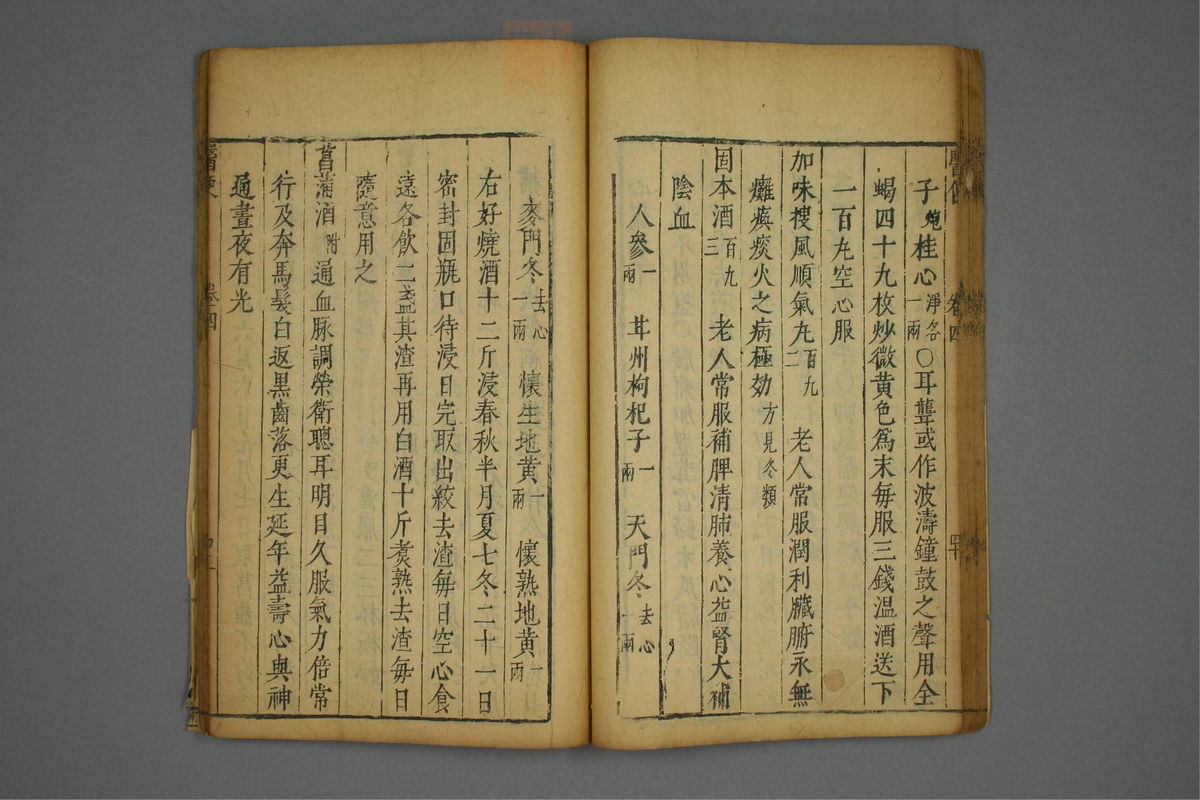 子炮桂心淨各一兩〇耳聾或作波濤鐘鼓之聲用全
蝎四十九枚炒微黃色爲末每服三錢温酒送下
一百九空心服
加味搜風順氣九百九二老人常服潤利臟腑永無
癱瘓痰火之病極効方見冬類
固本酒百九三老人常服補脾清肺養心益腎大補
陰血
人參一兩 甘州枸杞子一兩 天門冬去心一兩
麥門冬去心一兩 懷生地黃一兩 懷熟地黃一兩
右好燒酒十二斤浸春秋半月夏七冬二十一日
密封固瓶口待浸日完取出絞去渣每日空心食
遠各飲二盞其渣再用白酒十斤煑熟去渣每日
隨意用之
菖蒲酒附通血脉調榮衛聰耳明目久服氣力倍常
行及奔馬髮白返黑齒落更生延年益壽心與神
通晝夜有光
卷四
卷四